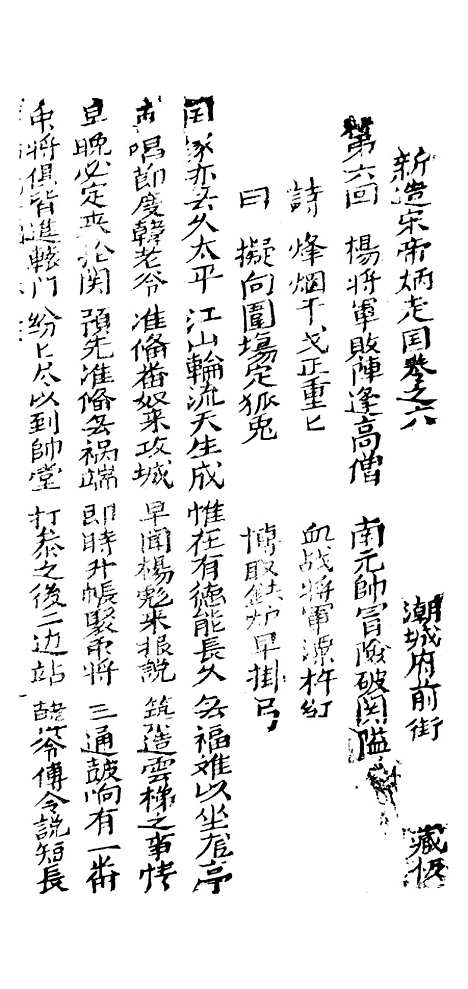 新造宋帝炳走囯卷之六 潮城府前街 藏板
第六回 楊將軍敗陣逢高僧 南元帥冒险破関隘
詩 烽烟干戈正重匕 血战將軍源杵红
曰 擬向圍塲定狐兎 愽取 炉早掛弓
囯家亦去久太平 江山輪流天生成 惟在有德能長久 旡福难以坐龙亭
唱節度韓老爷 准俻畨奴来攻城 早聞楊彪来报說 筑造雲梯之事情
早晚必定夾於関 預先准俻旡祸端 即時升帳聚众將 三通鼓响有一畨
众將俱皆進轅门 纷匕尽以到帥堂 打叅之後二边站 韓爷傅令說短長